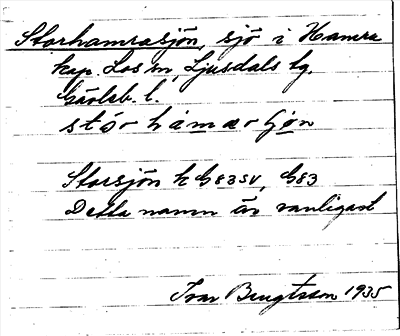 Storhamrasjön, sjö i Hamra
kap. Los sn, Ljusdals tg.
Gävleb. l.
stór hámarʃøn
Storsjön k G83SV, G83
Detta namn är vanligast
Ivar Bengtsson 1935